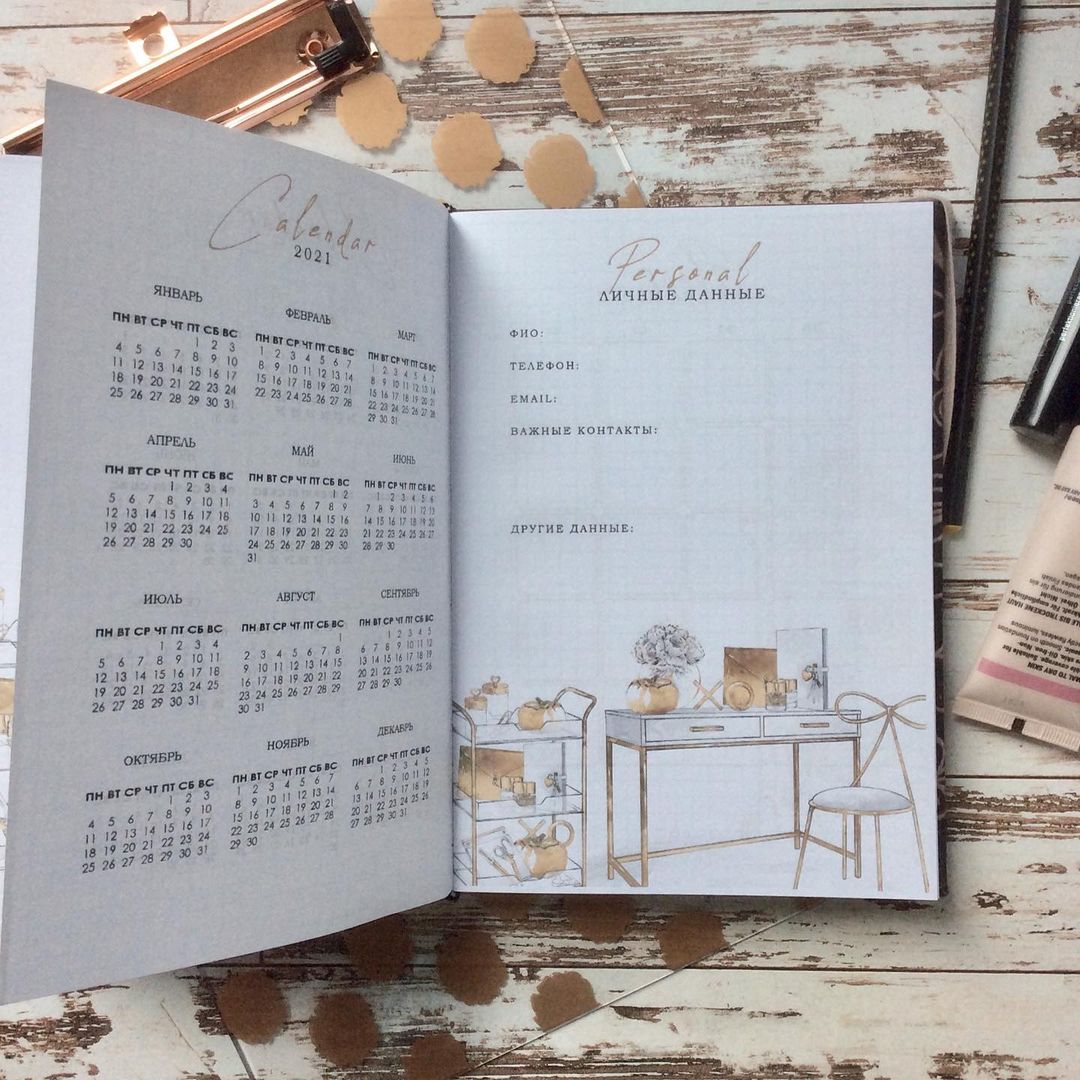 Calendar
2021
ЯНВАРЬ
ПН ВТ СР ЧТ ПТ СБ ВС
1 2 3
4 5 6 7 8 9 10
11 12 13 14 15 16 17
18 19 20 21 22 23 24
25 26 27 28 29 30 31
ФЕВРАЛЬ
ПН ВТ СР ЧТ ПТ СБ ВС
1 2 3 4 5 6 7
8 9 10 11 12 13 14
15 16 17 18 19 20 21
22 23 24 25 26 27 28
МАРТ
ПН ВТ СР ЧТ ПТ СБ ВС
1 2 3 4 5 6 7
8 9 10 11 12 13 14
15 16 17 18 19 20 21
22 23 24 25 26 27 28
29 30 31
АПРЕЛЬ
ПН ВТ СР ЧТ ПТ СБ ВС
1 2 3 4
5 6 7 8 9 10 11
12 13 14 15 16 17 18
19 20 21 22 23 24 25
26 27 28 29 30
МАЙ
ПН ВТ СР ЧТ ПТ СБ ВС
1 2
3 4 5 6 7 8 9
10 11 12 13 14 15 16
17 18 19 20 21 22 23
24 25 26 27 28 29 30
31
ИЮНЬ
ПН ВТ СР ЧТ ПТ СБ ВС
1 2 3 4 5 6
7 8 9 10 11 12 13
14 15 16 17 18 19 20
21 22 23 24 25 26 27
28 29 30
ИЮЛЬ
ПН ВТ СР ЧТ ПТ СБ ВС
1 2 3 4
5 6 7 8 9 10 11
12 13 14 15 16 17 18
19 20 21 22 23 24 25
26 27 28 29 30 31
АВГУСТ
ПН ВТ СР ЧТ ПТ СБ ВС
1
2 3 4 5 6 7 8
9 10 11 12 13 14 15
16 17 18 19 20 21 22
23 24 25 26 27 28 29
30 31
СЕНТЯБРЬ
ПН ВТ СР ЧТ ПТ СБ ВС
1 2 3 4 5
6 7 8 9 10 11 12
13 14 15 16 17 18 19
20 21 22 23 24 25 26
27 28 29 30
ОКТЯБРЬ
ПН ВТ СР ЧТ ПТ СБ ВС
1 2 3
4 5 6 7 8 9 10
11 12 13 14 15 16 17
18 19 20 21 22 23 24
25 26 27 28 29 30 31
НОЯБРЬ
ПН ВТ СР ЧТ ПТ СБ ВС
1 2 3 4 5 6 7
8 9 10 11 12 13 14
15 16 17 18 19 20 21
22 23 24 25 26 27 28
29 30
ДЕКАБРЬ
ПН ВТ СР ЧТ ПТ СБ ВС
1 2 3 4 5
6 7 8 9 10 11 12
13 14 15 16 17 18 19
20 21 22 23 24 25 26
27 28 29 30 31
Personal
ЛИЧНЫЕ ДАННЫЕ
ФИО:
ТЕЛЕФОН:
EMAIL:
ВАЖНЫЕ КОНТАКТЫ:
ДРУГИЕ ДАННЫЕ:
XO